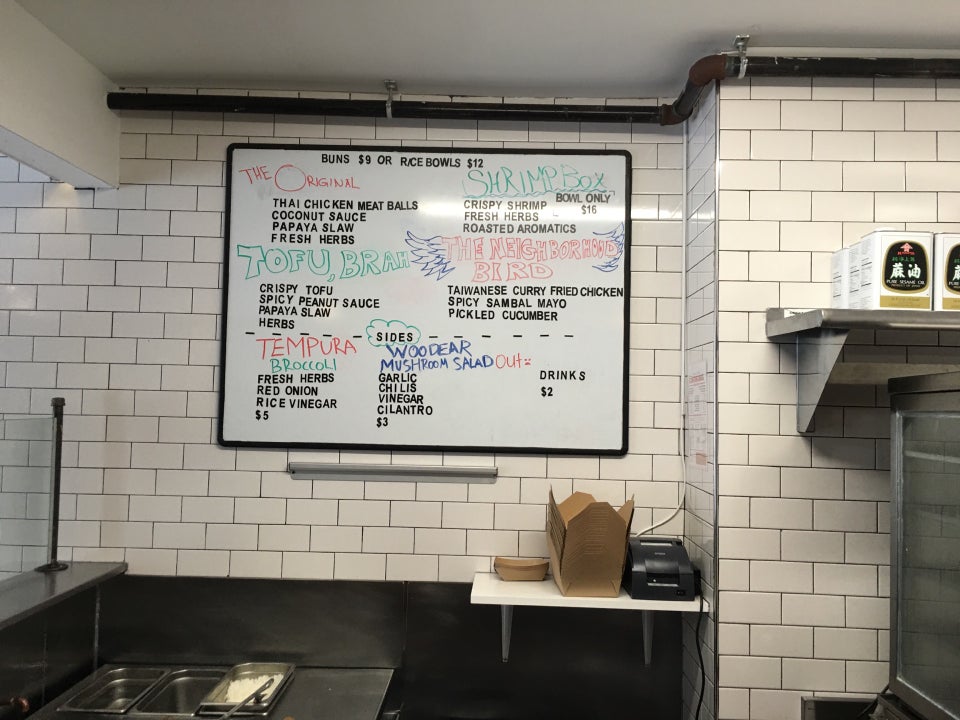 BUNS $9 OR RICE BOWLS $12
THE ORIGINAL
THAI CHICKEN MEAT BALLS
COCONUT SAUCE
PAPAYA SLAW
FRESH HERBS
SHRIMP BOX
BOWL ONLY
$16
CRISPY SHRIMP
FRESH HERBS
ROASTED AROMATICS
TOFU, BRAH
CRISPY TOFU
SPICY PEANUT SAUCE
PAPAYA SLAW
HERBS
THE NEIGHBORHOOD
BIRD
TAIWANESE CURRY FRIED CHICKEN
SPICY SAMBAL MAYO
PICKLED CUCUMBER
SIDES
TEMPURA
BROCCOLI
FRESH HERBS
RED ONION
RICE VINEGAR
$5
WOODEAR
MUSHROOM SALAD OUT
GARLIC
CHILIS
VINEGAR
CILANTRO
$3
DRINKS
$2
麻油
PURE SESAME OIL